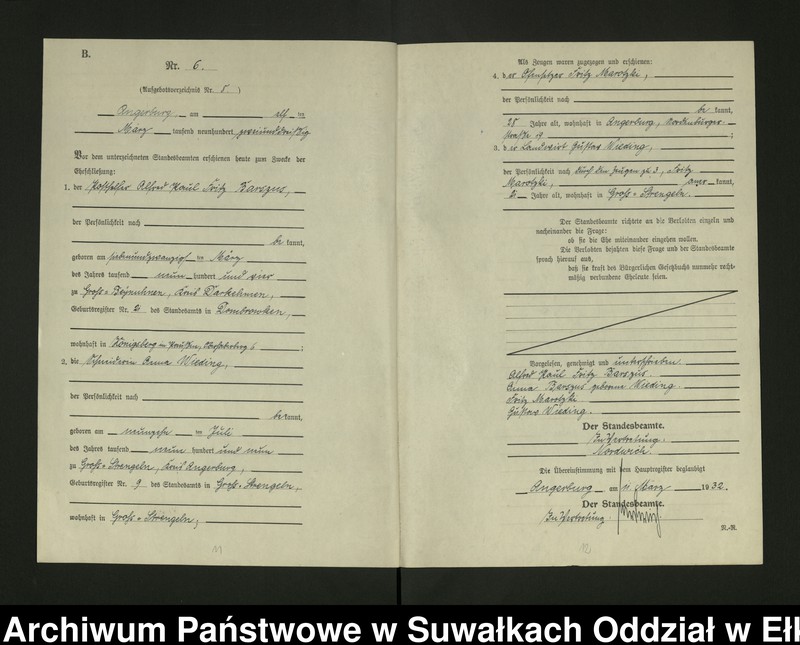 B.
Nr. 6.
(Aufgebotsverzeichnis Nr. 8)
Angerburg, am elf ten
März tausend neunhundert zweiunddreißig
Vor dem unterzeichneten Standesbeamten erschienen heute zum Zwecke der
Eheschließung:
1. der Alfred Paul Fritz Barszus,
der Persönlichkeit nach
be kannt,
geboren am siebenundzwanzigsten März
des Jahres tausend neun hundert und vier
zu Groß-Beynuhnen, Kreis Darkehmen,
Geburtsregister Nr. 2 des Standesamts in Dombrowken,
wohnhaft in Königsberg in Preußen, 6;
2. die Schneiderin Anna Wieding,
der Persönlichkeit nach
be kannt,
geboren am neunzehnten Juli
des Jahres tausend neun hundert und neun
zu Groß-Strengeln, Kreis Angerburg,
Geburtsregister Nr. 9 des Standesamts in Groß-Strengeln,
wohnhaft in Groß-Strengeln;
11
Als Zeugen waren zugezogen und erschienen:
4. der Ofensetzer Fritz Marotzki,
der Persönlichkeit nach
be kannt,
28 Jahre alt, wohnhaft in Angerburg, Nordenburger
Straße 19;
3. d er Landwirt Gustav Wieding,
der Persönlichkeit nach durch den Zeugen zu 3, Fritz
Marotzki, aner kannt,
Jahre alt, wohnhaft in Groß-Strengeln.
Der Standesbeamte richtete an die Verlobten einzeln und
nacheinander die Frage:
ob sie die Ehe miteinander eingehen wollen.
Die Verlobten bejahten diese Frage und der Standesbeamte
sprach hierauf aus,
daß sie kraft des Bürgerlichen Gesetzbuchs nunmehr recht-
mäßig verbundene Eheleute seien.
Vorgelesen, genehmigt und unterschrieben.
Alfred Paul Fritz Barszus.
Anna Barszus geborene Wieding.
Fritz Marotzki.
Gustav Wieding.
Der Standesbeamte.
In Vertretung.
Nordwich.
Die Übereinstimmung mit dem Hauptregister beglaubigt
Angerburg am 11. März 1932.
Der Standesbeamte.
In Vertretung.
N.-R.
12
Archiwum Państwowe w Suwałkach Oddział w Ełk